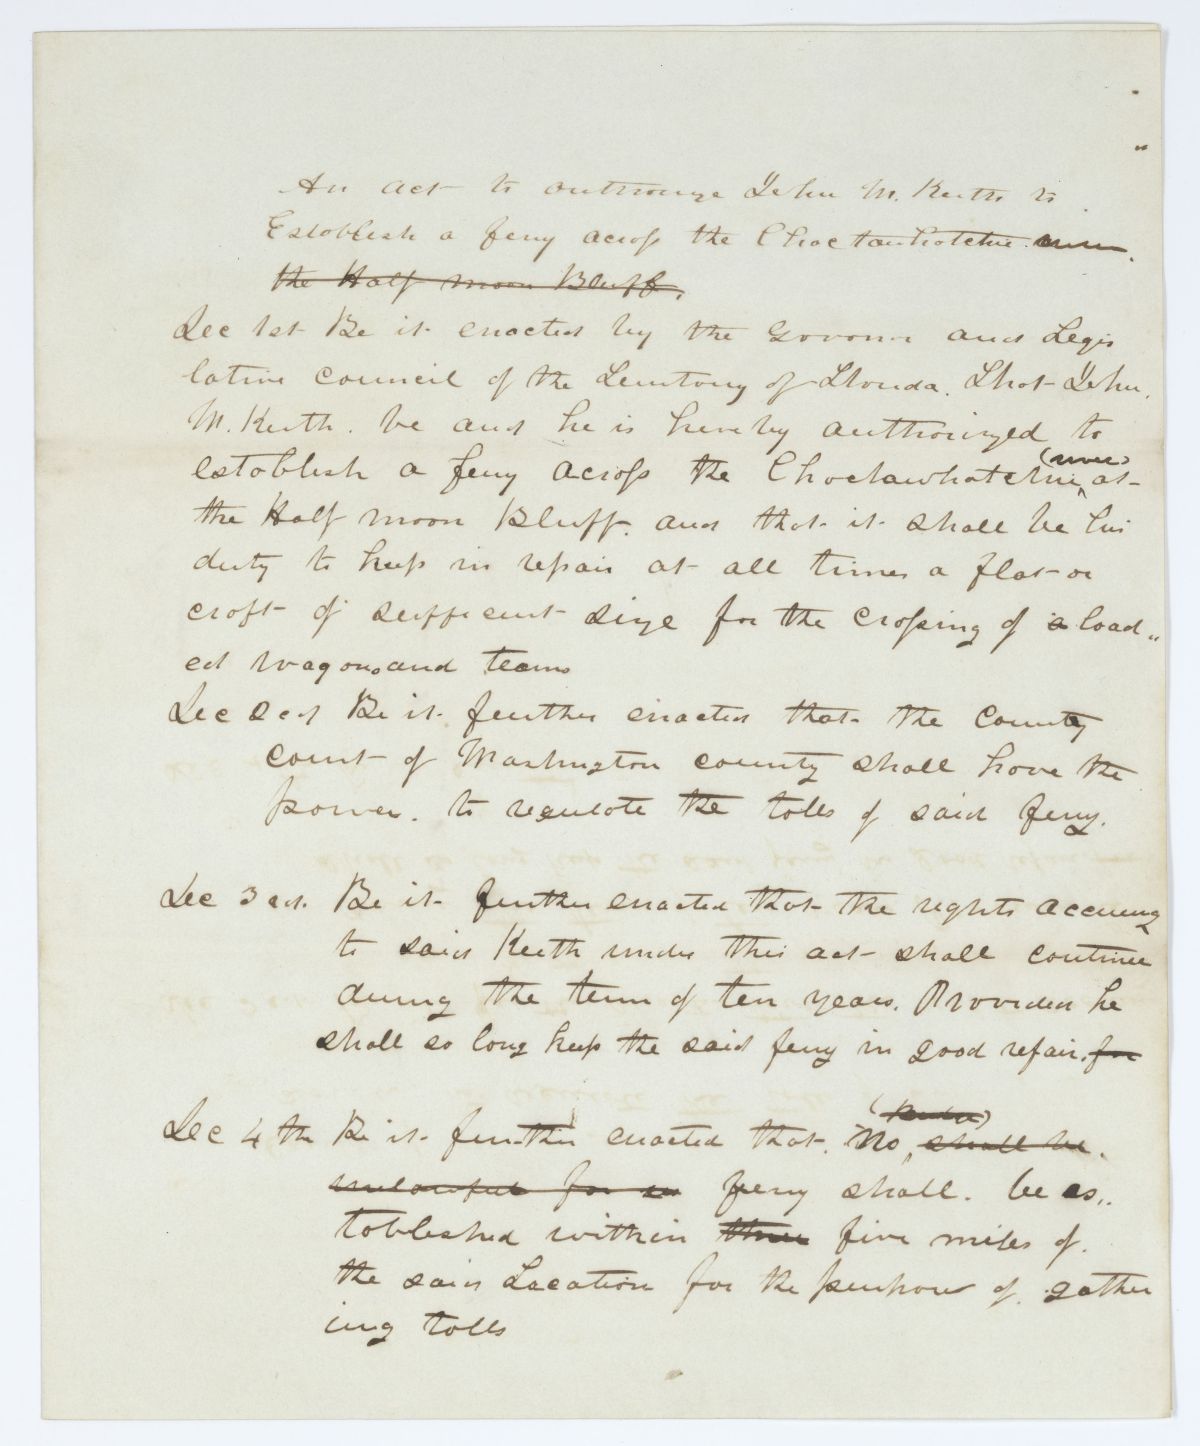 An act to authorize John M. Keith to
Establish a ferry across the Choctawhatchie river.
the Half moon Bluff.
Sec 1st Be it enacted by the Govonor and Legis
lative council of the Territory of Florida. That John
M. Keith. be and he is hereby authorized to
(river)
establish a ferry across the Choctawhatchie, at
the Half moon Bluff. and that it shall be his
duty to keep in repair at all times a flat or
craft of sufficient size for the crossing of a load„
ed wagons and teams
Sec 2ed Be it further enacted that the County
court of Washington county shall have the
power. to regulate the tolls of said ferry.
Sec 3ed. Be it further enacted that the rights accruing
to said Keith under this act shall continue
during the term of ten years. Provided he
shall so long keep the said ferry in good repair. for
Sec 4th Be it further enacted that. No, shall be.
unlawful for a ferry shall. be es„
tablished within three five miles of.
the said Location for the purpose of. gather
ing tolls